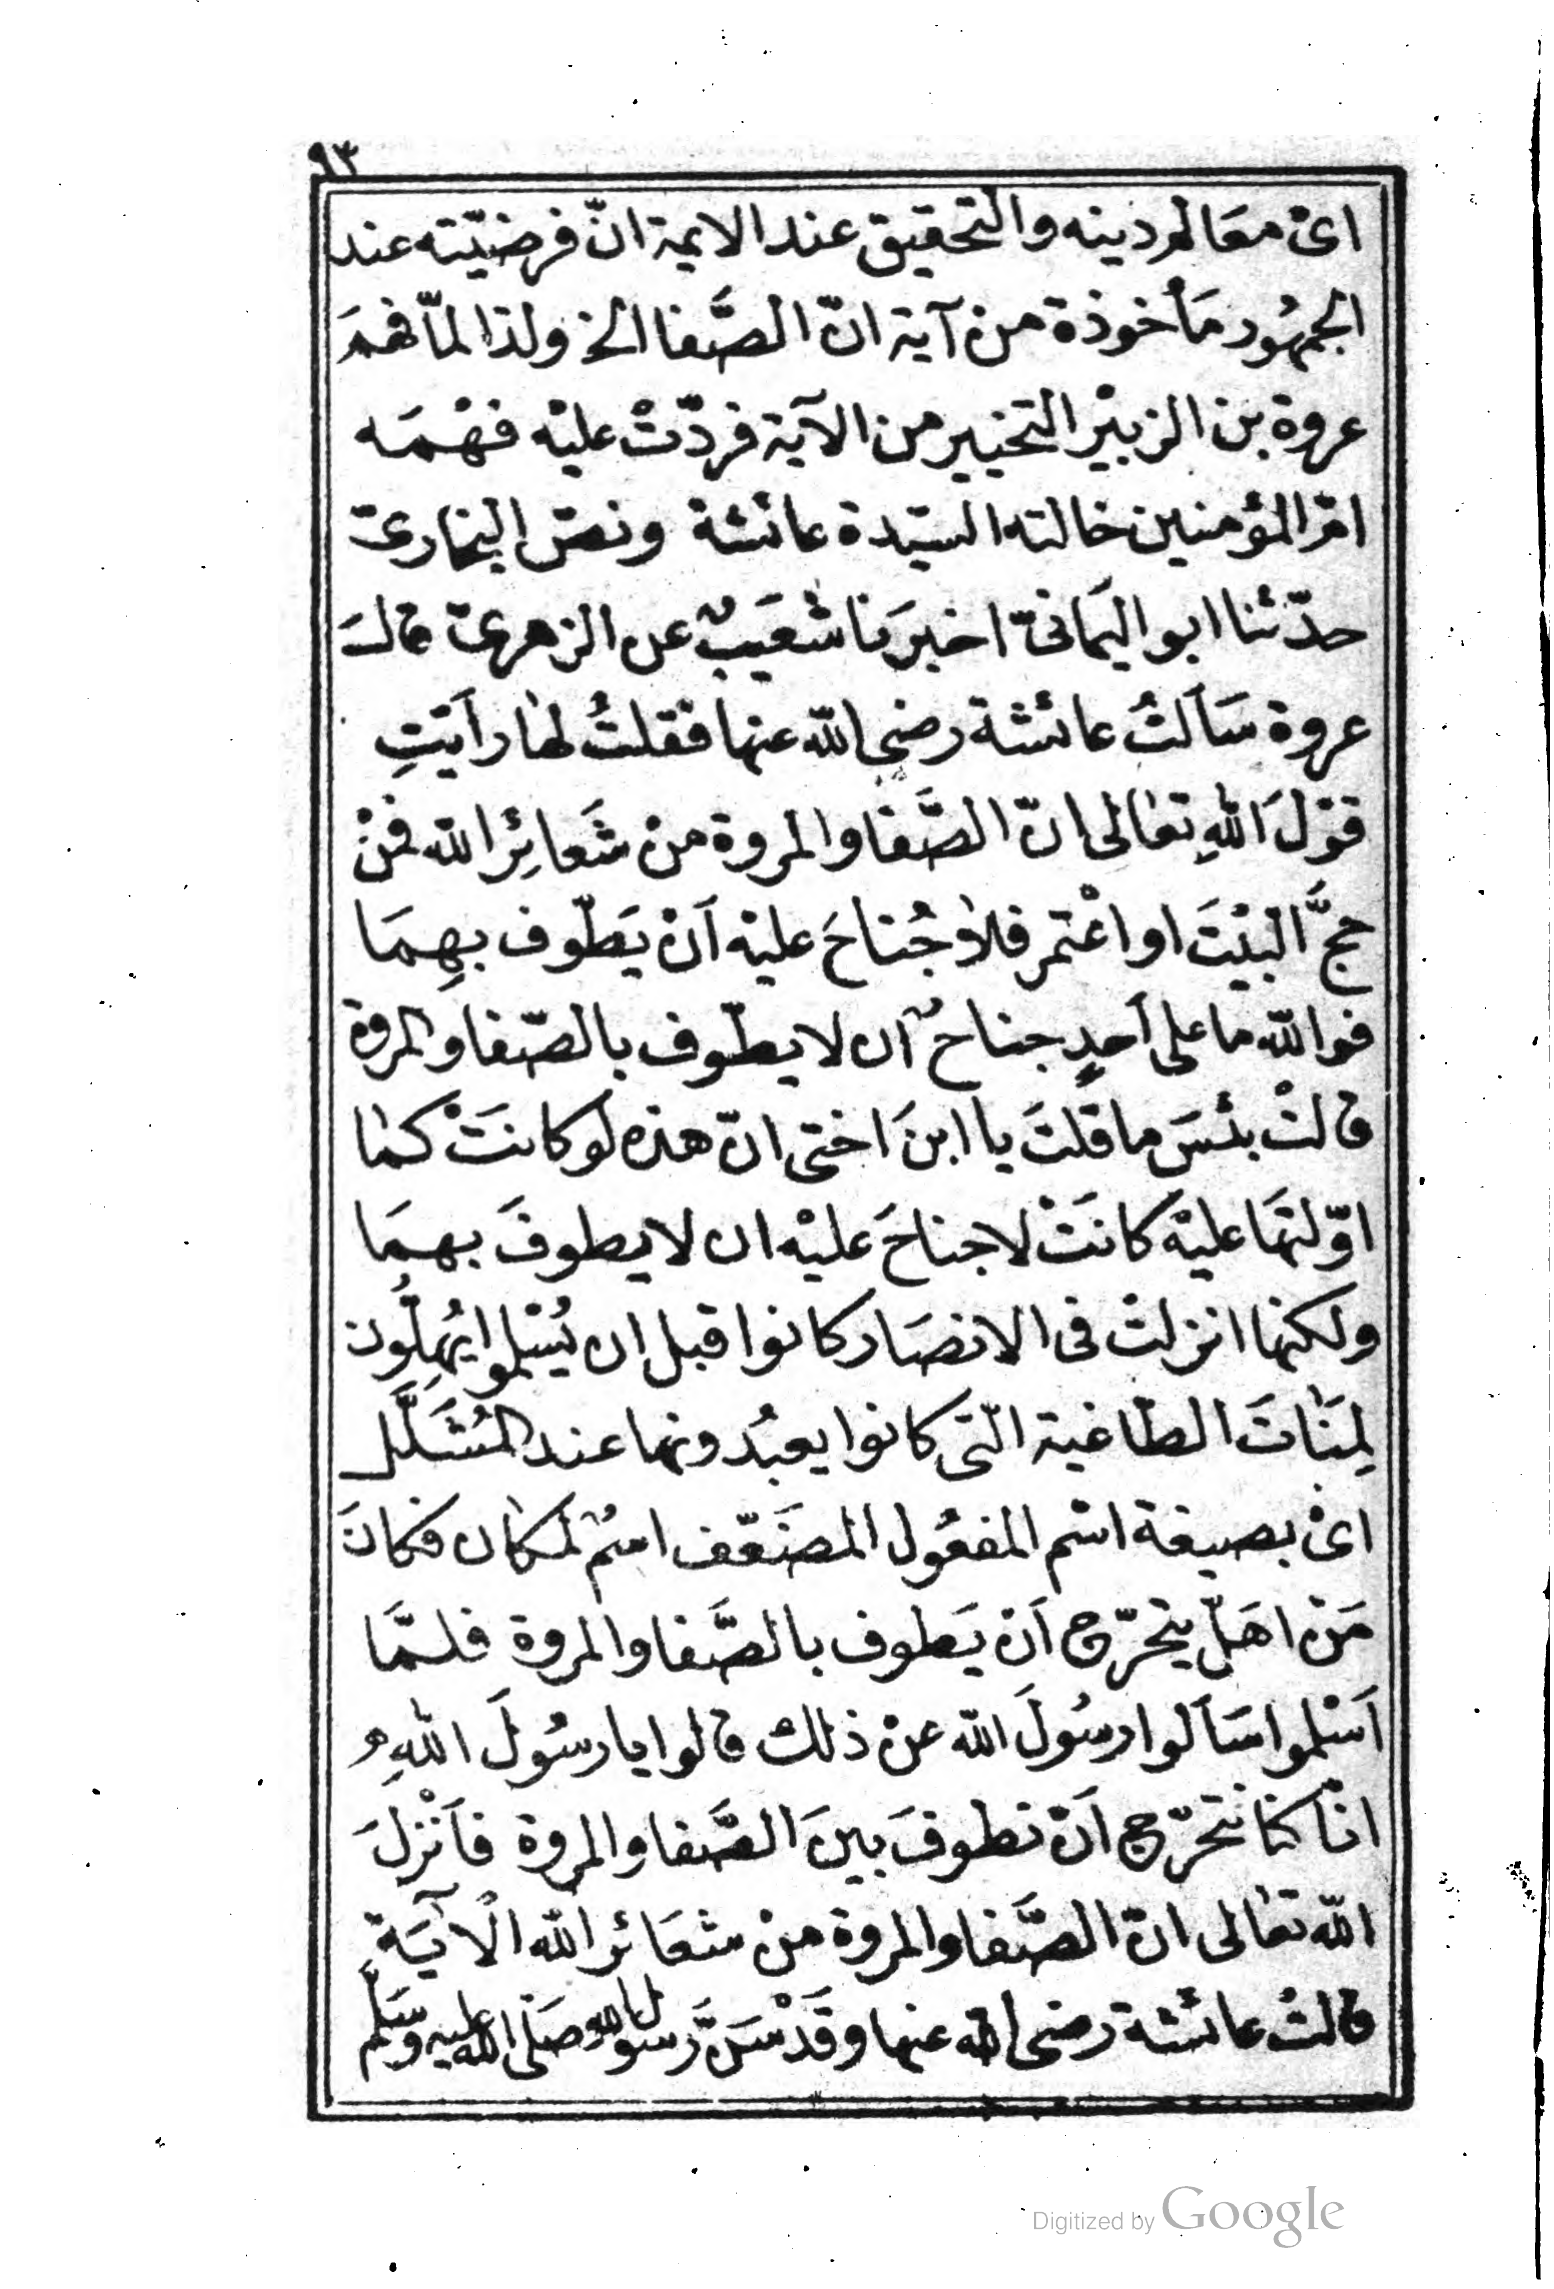 ٩٣
اىْ معَالم دينه والتحقيق عند الايمة انّ فرضيّته عند
الجمهُور مَأخوذة من آية انّ الصَّفا الخ ولذا لمّا فهمَ
عروة بن الزبيْر التخيير من الآية فردّتْ عليْه فهْمَه
امّ المؤمنين خالته السيّدة عائشة ونصّ البخارىّ
حدّثنا ابو اليَمانىّ اخبرَنا شعَيبٌ عن الزهرىّ قالَ
عروة سَاَلتُ عائشة رضى الله عنها فقلتُ لها راَيتِ
قوْلَ اللهِ تعَالى انّ الصَّفا والمروة منْ شَعائِر الله فمنْ
حجَّ البيْتَ او اعْتمر فلا جُناحَ عليْه اَنْ يَطّوف بهِمَا
فوالله ما على اَحدٍ جناحٌ ان لا يطّوف بالصّفا والمروة
قالتْ بئسَ ما قلتَ يا ابنَ اختى انّ هذه لو كانتْ كما
اوّلتهَا عليْه كانَتْ لا جناحَ عليْه ان لا يطوفَ بهمَا
ولكنها انزلتْ فى الانصَار كانوا قبل ان يُسْلموا يُهِلُّون
لِمَنَاتَ الطّاغية الّتى كانوا يعبُدونها عند المُشَلَّل
اىْ بصيغة اسْم المفعُول المضَعّف اسْمٌ لمكان فكانَ
مَنْ اهَلّ يتحَرّج اَنْ يَطوف بالصَّفا والمروة فلمَّا
اَسْلموا سَاَلوا رسُولَ الله عنْ ذلك قالوا يا رسُولَ اللهِ
انّا كنا نتحَرّج اَنْ نطوفَ بينَ الصَّفا والمروة فاَنْزلَ
الله تعَالى انّ الصَّفا والمروة منْ شعَائر الله الْآيَة
قالتْ عائشة رضى الله عنها وقَدْ سَنَّ رسول الله صَلى الله عليه وسَلّم
Digitized by Google